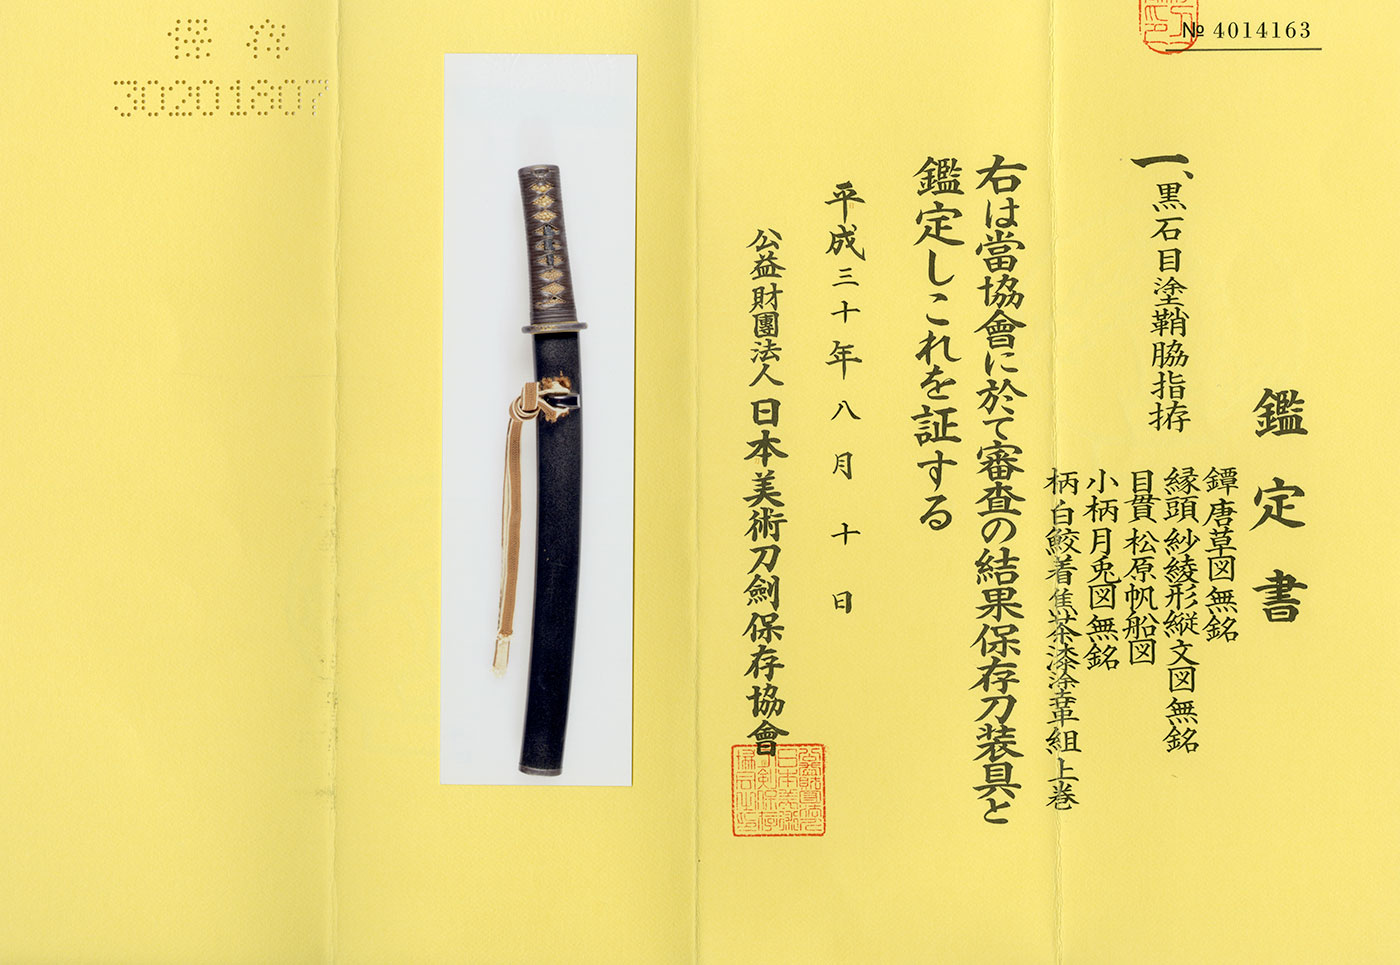 № 4014163
鑑定書
一、黒石目塗鞘脇指拵
鐔唐草図無銘
縁頭紗綾形縦文図無銘
目貫松原帆船図
小柄月兎図無銘
柄白鮫着焦茶漆塗革組上巻
右は當協會に於て審査の結果保存刀装具と
鑑定しこれを証する
平成三十年八月十日
公益財團法人日本美術刀劍保存協會
保存
30201807